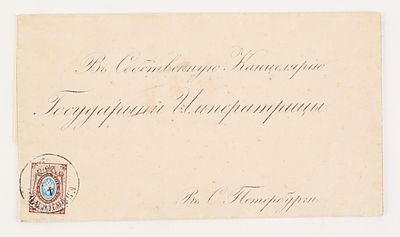 Въ Собственную Канцелярію
Государыни Императрицы
Въ С. Петербургѣ